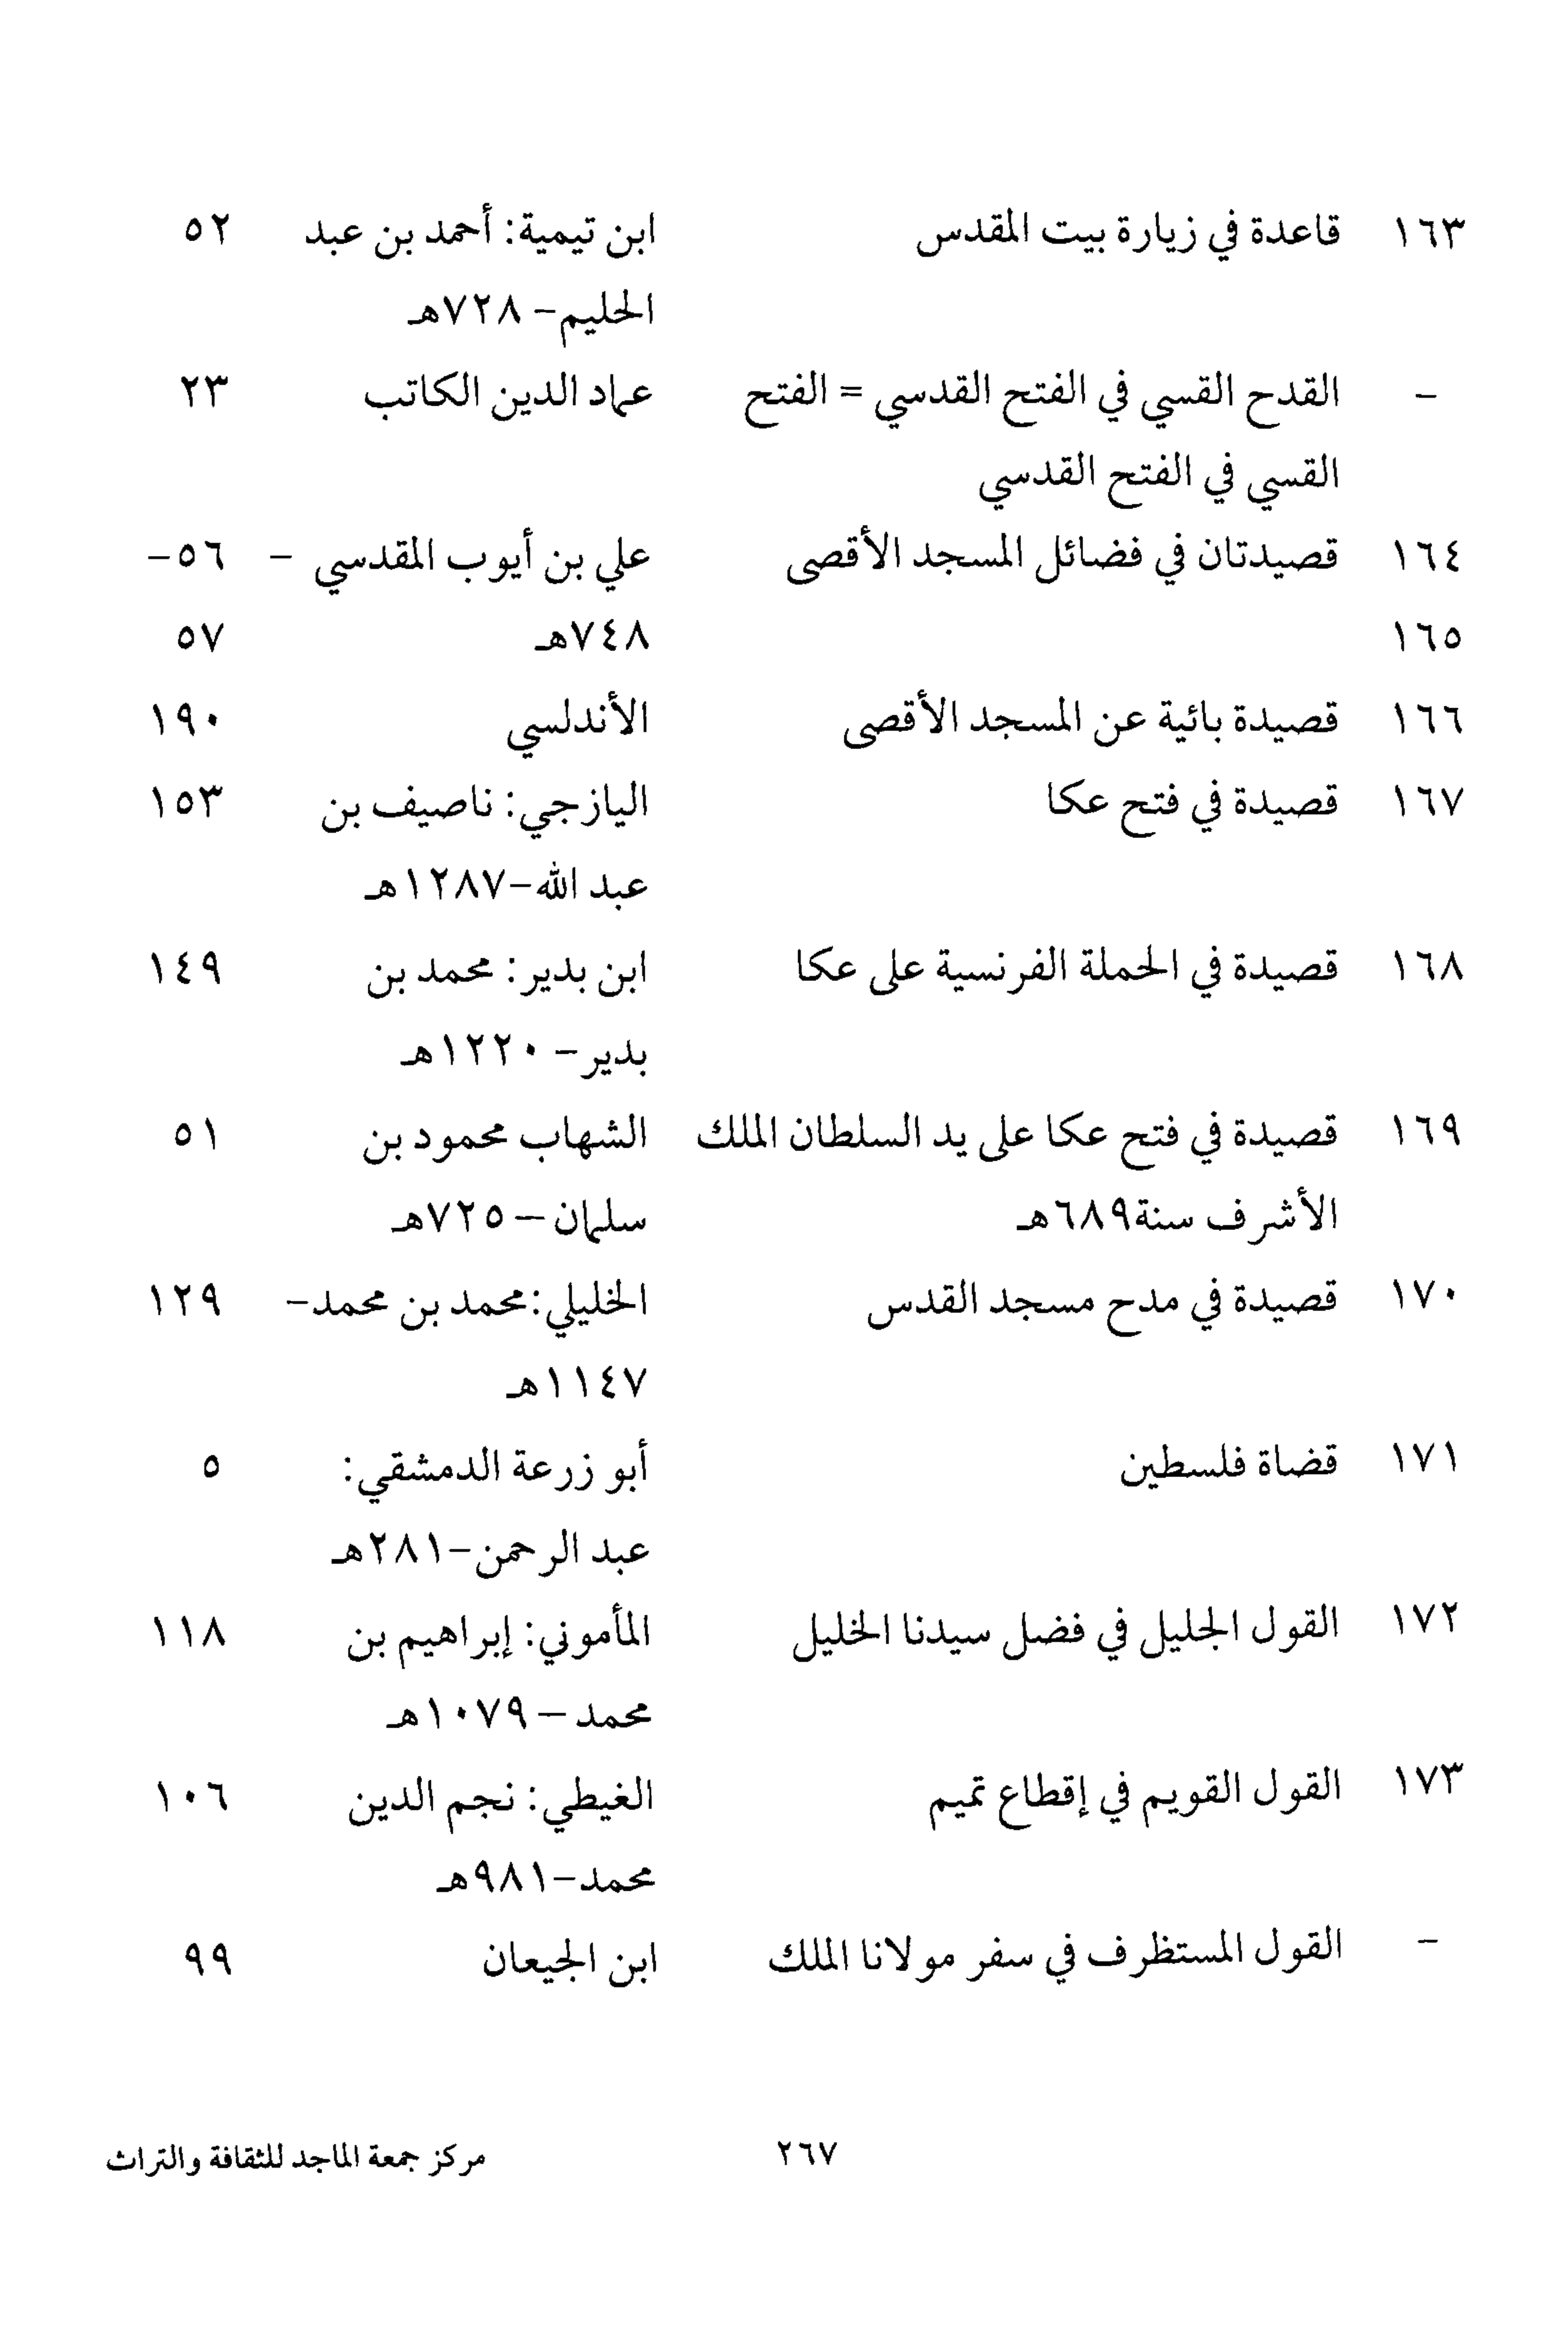 ١٦٣ قاعدة في زيارة بيت المقدس ابن تيمية: أحمد بن عبد ٥٢
الحليم– ٧٢٨هـ
– القدح القسي في الفتح القدسي = الفتح عماد الدين الكاتب ٢٣
القسي في الفتح القدسي
١٦٤ قصيدتان في فضائل المسجد الأقصى علي بن أيوب المقدسي – ٥٦–
١٦٥ ٧٤٨هـ ٥٧
١٦٦ قصيدة بائية عن المسجد الأقصى الأندلسي ١٩٠
١٦٧ قصيدة في فتح عكا اليازجي: ناصيف بن ١٥٣
عبد الله–١٢٨٧هـ
١٦٨ قصيدة في الحملة الفرنسية على عكا ابن بدير: محمد بن ١٤٩
بدير– ١٢٢٠هـ
١٦٩ قصيدة في فتح عكا على يد السلطان الملك الشهاب محمود بن ٥١
الأشرف سنة٦٨٩هـ سلمان – ٧٢٥هـ
١٧٠ قصيدة في مدح مسجد القدس الخليلي:محمد بن محمد– ١٢٩
١١٤٧هـ
١٧١ قضاة فلسطين أبو زرعة الدمشقي: ٥
عبد الرحمن–٢٨١هـ
١٧٢ القول الجليل في فضل سيدنا الخليل المأموني: إبراهيم بن ١١٨
محمد – ١٠٧٩هـ
١٧٣ القول القويم في إقطاع تميم الغيطي: نجم الدين ١٠٦
محمد–٩٨١هـ
– القول المستظرف في سفر مولانا الملك ابن الجيعان ٩٩
٢٦٧ مركز جمعة الماجد للثقافة والتراث